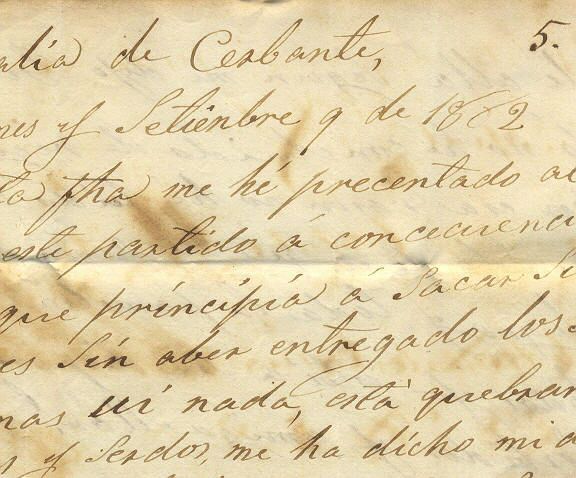 5.
alia de Cerbante,
nes y Setienbre 9 de 1862
ta fha me hé precentado al
este partido á concecuenci
que principia á Sacar Su
es Sin aber entregado los
mas ui nada, está quebran
y Serdos, me ha dicho mi a